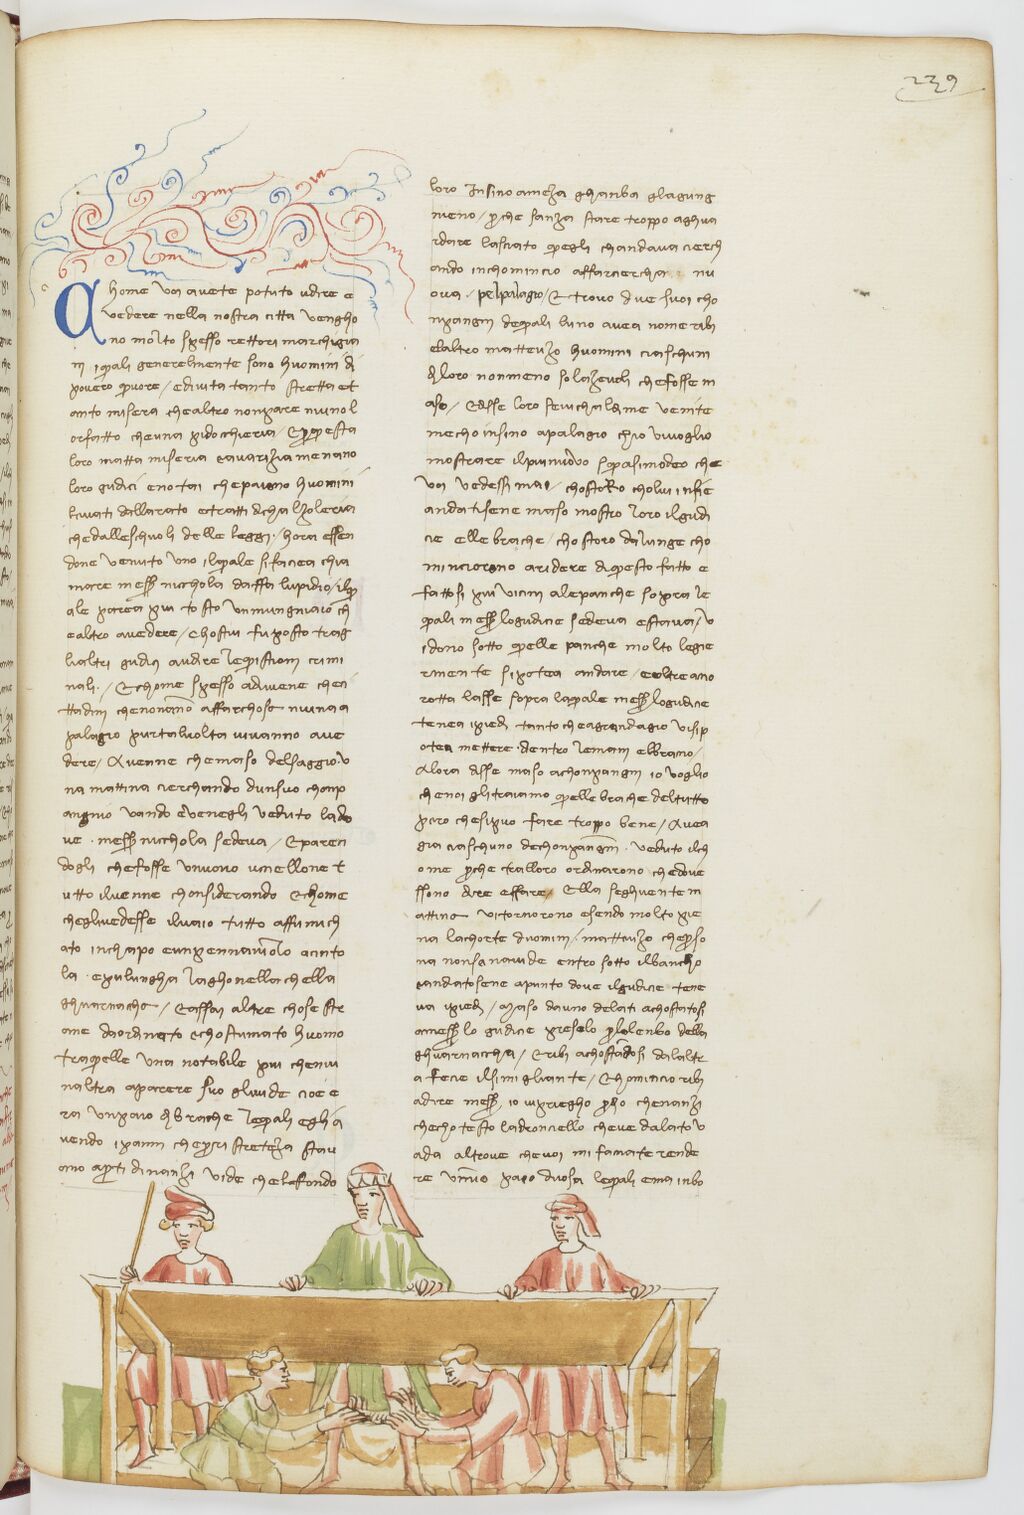 239
Chome voi avete potuto udire e
vedere nella nostra citta vengho
no molto spesso rettori marchigia
ni iquali generelmente sono huomini di
povero quore / edivita tanto stretta et
anto misera chealtro nonpare niuno l
or fatto cheuna pidocchieria / &perquesta
loro innata miseria &avarizia menano
loro giudici enotai chepaiono huomini
levati dallarato etratti dicha lzoleria
chedallescuoli delle leggi . hora essen
done venuto uno ilquale sifaciea chia
mare mess nicchola dassa lupidio / ilqu
ale parea piu to sto unmungniaio ch
ealtro avedere / chostui fu posto trag
lialtri giudici audire lequistioni crimi
nali . / &chome spesso adiviene checi
ttadini chenonanno affarchose niuna a
palagio puretalvolta vivanno ave
dere / Avenne chemaso delsaggio v
na mattina cierchando dunsuo chonp
angnio vando &venegli veduto lado
ve . mess nicchola sedeva / &paren
dogli chefosse unnuovo ucellone t
utto iluenne chonsiderando &chome
chegliuedesse ilvaio tutto affumich
ato inchapo eunpennaiuolo acinto
la . epiulungha laghonella chella
ghuarnacha / &assai altre chose str
ane daordinato &chostumato huomo
traquelle una notabile piu cheniu
naltra aparere suo gliuide cioe e
ra unpaio dibrache lequali eglia
vendo ipanni cheperistretezza stau
ano aperti dinanzi vide chelafondo
loro insinoameza ghanba glagung
nieno / perche sanza stare troppo aghua
rdare lasciato quegli chandava cierch
ando inchomincio affarcierchare nu
ova . pelpalagio / &trovo due suoi cho
npangni dequali luno avea nome ribi
elaltro matteuzo huomini ciaschuni
diloro nonmeno solazevoli chefosse m
aso / &disse loro sevichaldime venite
mecho insino apalagio chio viuoglio
mostrare ilpiunuovo squasimodeo che
voi vedessi mai / choستoro cholui insie
andatisene maso mostro loro ilgiudi
cie elle brache / chostoro dalunge cho
minciorono aridere diquesto fatto e
fattosi piu vicini alepanche sopra le
quali mess logiudicie sedeva estavan / v
idono sotto quelle panche molto legie
rmente sipotea andare / eoltreacio
rotta lasse sopra laquale mess logiudicie
tenea ipiedi tantocheagrandagio visip
otea mettere . dentro lemani elbracio /
Alora disse maso achonpangni io voglio
chenoi glitraiamo quelle brache deltutto
pero chesipuo fare troppo bene / Avea
gia ciaschuno dechonpangni . veduto ilch
ome perche tralloro ordinarono chedove
ssono dire effare / Ella seghuente m
attina vitornorono esendo molto pie
na lachorte duomini / matteuzo cheperso
na nonsenavide entro sotto ilbancho
&andatosene apunto dove ilgiudicie tene
va ipiedi / Maso dauno delati achostatosi
amess lo giudicie preselo perlolenbo della
ghuarnaccha / &ribi achostandosi dalaltr
a fecie ilsimigliante / &chomincio ribi
adire mess , io vipriegho perdio chenanzi
checho testo ladroncello cheve dalato v
ada altrove chevoi mi faciate rende
re unmio paio duosa lequali ema inbo